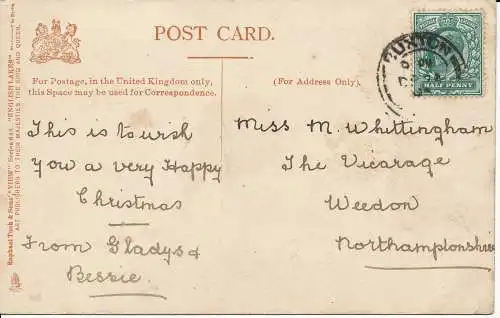 POST CARD.
For Postage, in the United Kingdom only,
this Space may be used for Correspondence.
(For Address Only).
This is to wish
you a very Happy
Christmas
From Gladys &
Bessie.
Miss M. Whittingham
The Vicarage
Weedon
Northamptonshire
BUXTON
HALF PENNY
Raphael Tuck & Sons' "VIEW" Series "ENGLISH LAKES"
ART PUBLISHERS TO THEIR MAJESTIES THE KING AND QUEEN.